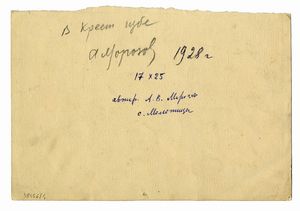 В Крест избе
А Морозов 1928 г
17 x 25
автор А. В. Морозов